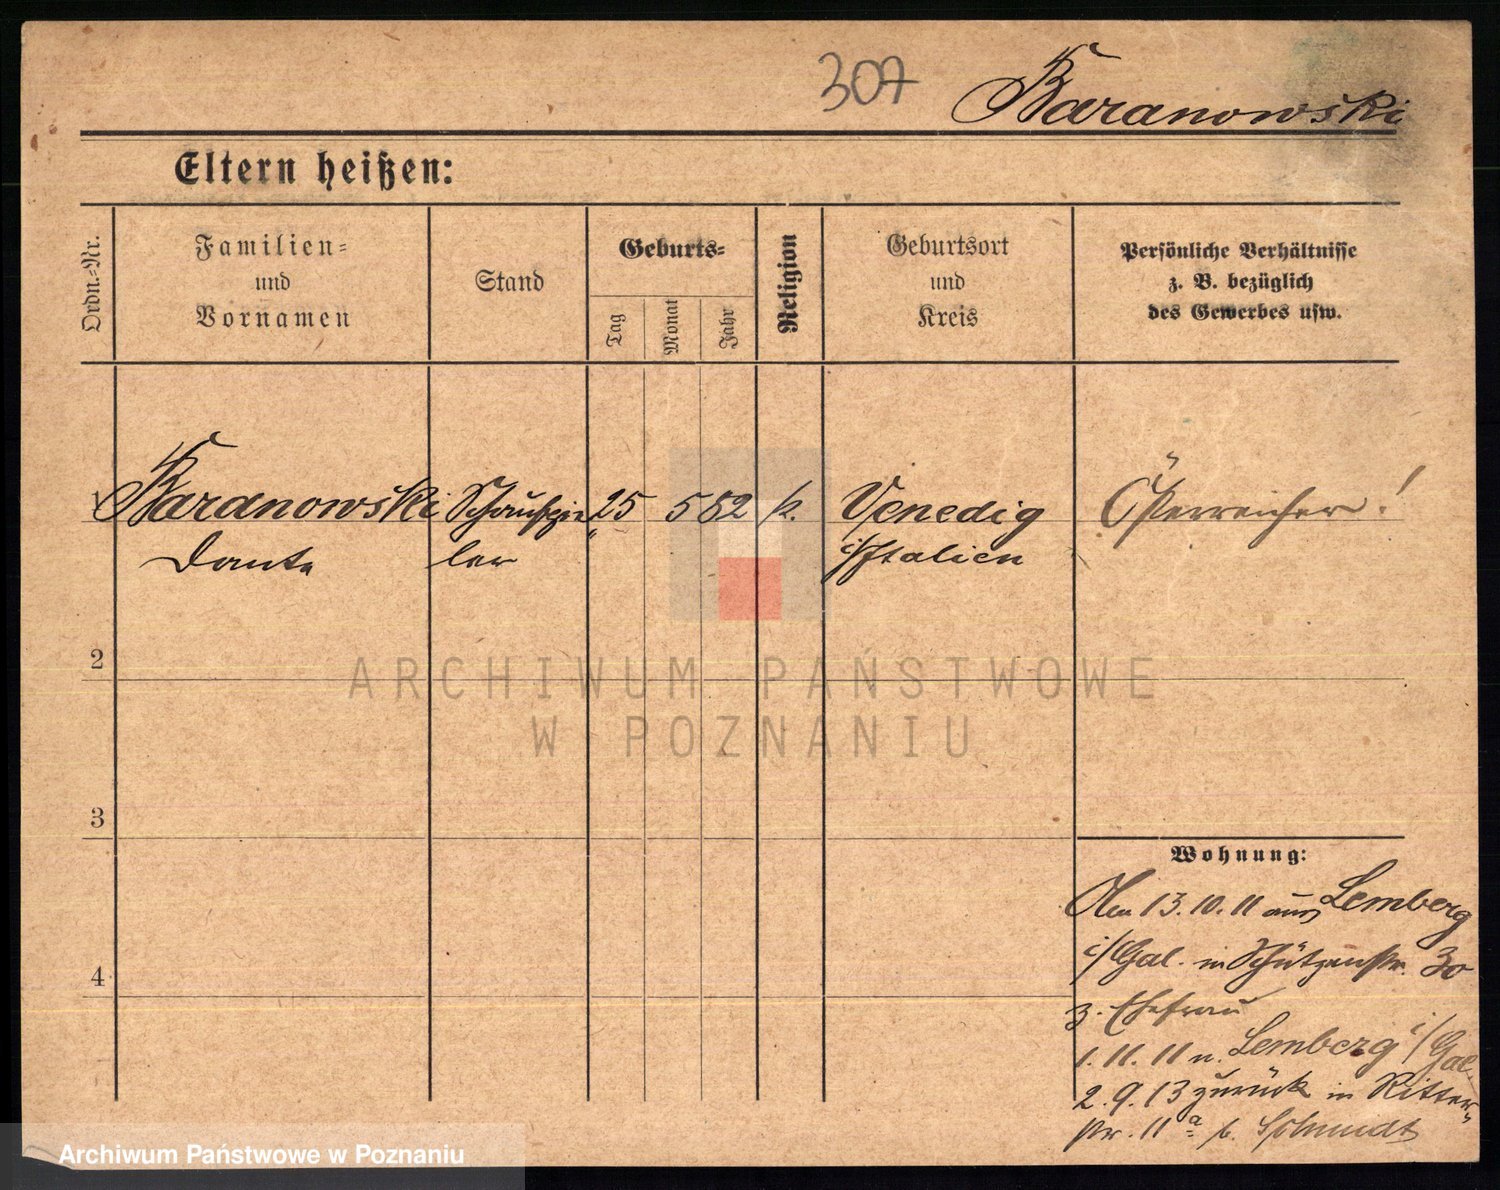 307 Baranowski
Eltern heißen:
Ordn.-Nr.
Familien-
und
Vornamen
Stand
Geburts-
Tag
Monat
Jahr
Religion
Geburtsort
und
Kreis
Persönliche Verhältnisse
z. B. bezüglich
des Gewerbes usw.
1 Baranowski Schauspie„ 25 5 82 k. Venedig Österreicher!
Dante ler i/Italien
2
ARCHIWUM PAŃSTWOWE
W POZNANIU
3
Wohnung:
Am 13.10.11 aus Lemberg
i/Gal. in Schützenstr. 30
4
z. Ehefrau
1.11.11 n. Lemberg i/Gal.
2.9.13 zurück in Ritter„
str. 11a b. Schmidt
Archiwum Państwowe w Poznaniu